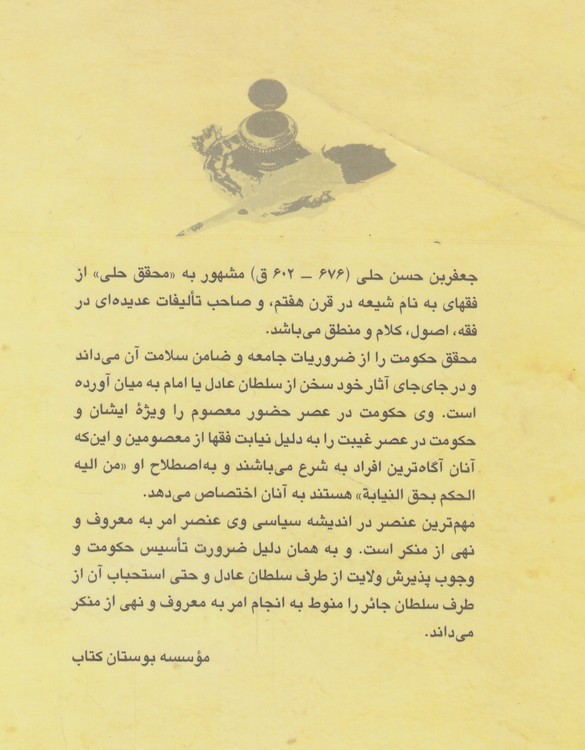 جعفربن حسن حلی (۶۷۶ ــ ۶۰۲ ق) مشهور به «محقق حلی» از
فقهای به نام شیعه در قرن هفتم، و صاحب تألیفات عدیده‌ای در
فقه، اصول، کلام و منطق می‌باشد.
محقق حکومت را از ضروریات جامعه و ضامن سلامت آن می‌داند
و در جای‌جای آثار خود سخن از سلطان عادل یا امام به میان آورده
است. وی حکومت در عصر حضور معصوم را ویژهٔ ایشان و
حکومت در عصر غیبت را به دلیل نیابت فقها از معصومین و این‌که
آنان آگاه‌ترین افراد به شرع می‌باشند و به‌اصطلاح او «من الیه
الحکم بحق النیابة» هستند به آنان اختصاص می‌دهد.
مهم‌ترین عنصر در اندیشه سیاسی وی عنصر امر به معروف و
نهی از منکر است. و به همان دلیل ضرورت تأسیس حکومت و
وجوب پذیرش ولایت از طرف سلطان عادل و حتی استحباب آن از
طرف سلطان جائر را منوط به انجام امر به معروف و نهی از منکر
می‌داند.
مؤسسه بوستان کتاب